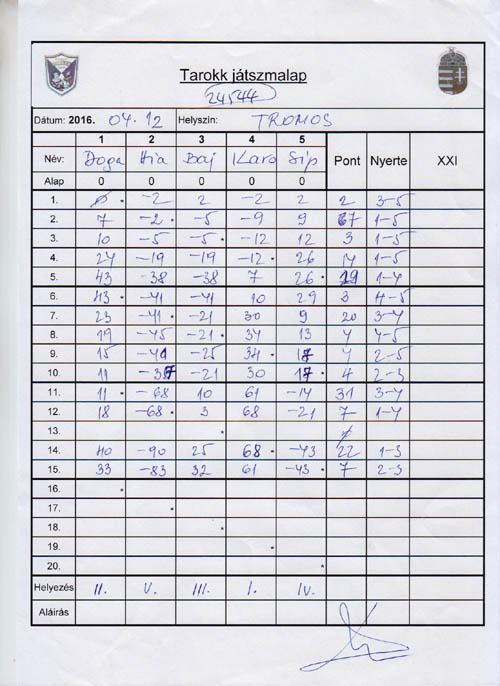 Tarokk játszmalap
24544
Dátum: 2016. 04.12 Helyszín: TROMOS
1 2 3 4 5
Név: Doga Hia Baj Karo Sip Pont Nyerte XXI
Alap 0 0 0 0 0
1. ø -2 2 -2 2 2 3-5
2. 7 -2 -5 -9 9 7 1-5
3. 10 -5 -5 -12 12 3 1-5
4. 24 -19 -19 -12 26 14 1-5
5. 43 -38 -38 7 26 19 1-4
6. 43 -41 -41 10 29 3 4-5
7. 23 -41 -21 30 9 20 3-4
8. 19 -45 -21 34 13 4 4-5
9. 15 -41 -25 34 17 4 2-5
10. 11 -37 -21 30 17 4 2-3
11. 11 -68 10 61 -14 31 3-4
12. 18 -68 3 68 -21 7 1-4
13.
14. 40 -90 25 68 -43 22 1-3
15. 33 -83 32 61 -43 7 2-3
16.
17.
18.
19.
20.
Helyezés II. V. III. I. IV.
Aláírás